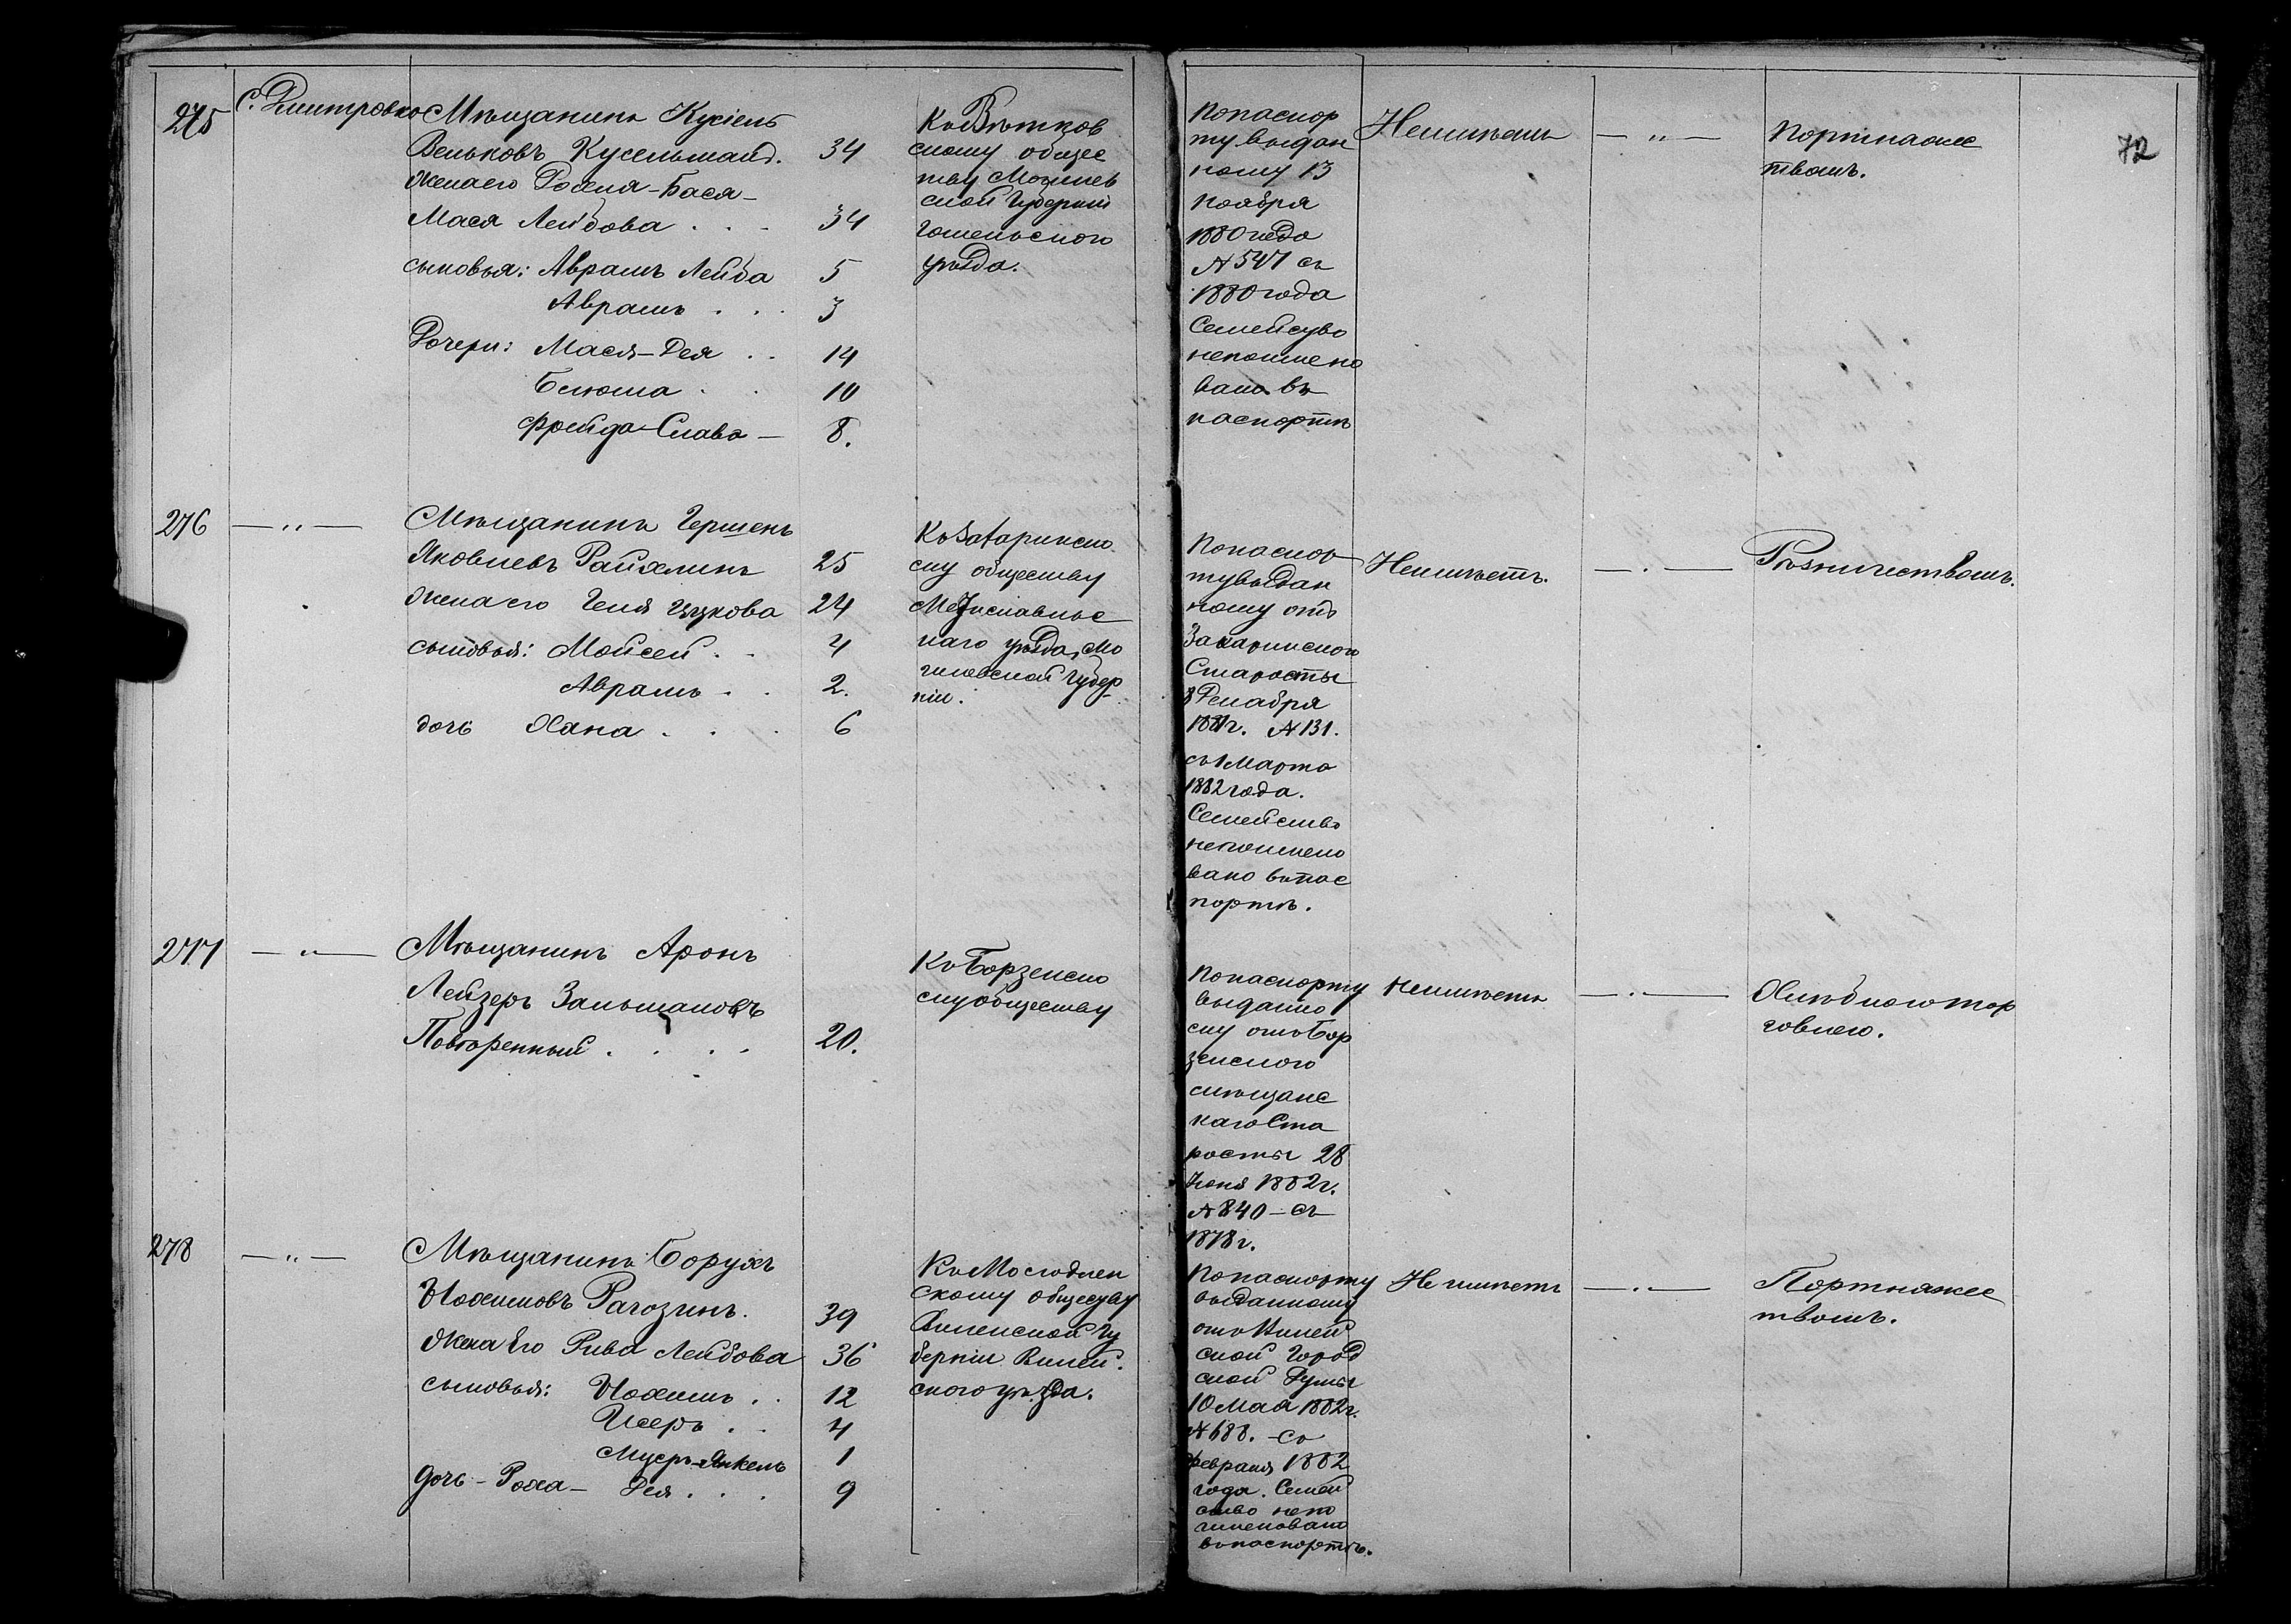 275
С. Дмитровка
Мѣщанинъ Кусіель
Вельковъ Кусельманъ. 34
Жена его Рохля-Бася-
Мася Лейбова . . . 34
сыновья: Абрамъ Лейба 5
Абрамъ . . . 3
Дочери: Мася-Дея . . 14
Белюша . . 10
Фрейда-Слава — 8.
Къ Вѣтков
скому общес
тву Могилев
ской Губерніи
Гомельского
уѣзда.
По паспор
ту выдан
ному 13
Ноября
1880 года
№ 547 съ
1880 года
Семейсво
непоимено
вано въ
паспортѣ
Неимѣетъ
— „ —
Портнажес
твомъ.
72
276
— „ —
Мѣщанинъ Гершенъ
Яковлевъ Райхлинъ 25
Жена его Геня Ицкова 24
сыновья: Мойсей . . 4
Абрамъ . . 2.
дочь Хана . . . 6
Къ Захаринско
му обществу
Мстиславльс
каго уѣзда, Мо
гилевской Губер
ніи.
По паспор
ту выдан
ному отъ
Захаринского
Старосты
8 Декабря
1881 г. № 131.
съ 1 Марта
1882 года.
Семейство
непоимено
вано въ пас
портѣ.
Неимѣетъ.
— „ —
Рѣзничествомъ.
277
— „ —
Мѣщанинъ Аронъ
Лейзеръ Зальмановъ
Повторенный . . . . 20.
Къ Борзенско
му обществу
По паспорту
выданно
му отъ Бор
зенского
мѣщанс
каго Ста
росты 28
Іюня 1882 г.
№ 840 — съ
1878 г.
Неимѣетъ
— „ —
Хлѣбною тор
говлею.
278
— „ —
Мѣщанинъ Борухъ
Нохимовъ Рагозинъ. 39
Жена Его Рива Лейбова 36
сыновья: Нохимъ . . 12
Исеръ . . 4
Мусръ-Янкель 1
дочь - Роха - Дея . . . 9
Къ Молодечен
скому обществу
Виленской Гу
берніи Вилей
ского уѣзда.
По паспорту
выданному
отъ Вилей
ской Город
ской Думы
10 Мая 1882 г.
№ 688. - съ
Февраля 1882
года. Семей
ство непо
именовано
въ паспортѣ.
Не имѣетъ
— „ —
Портняжес
твомъ.